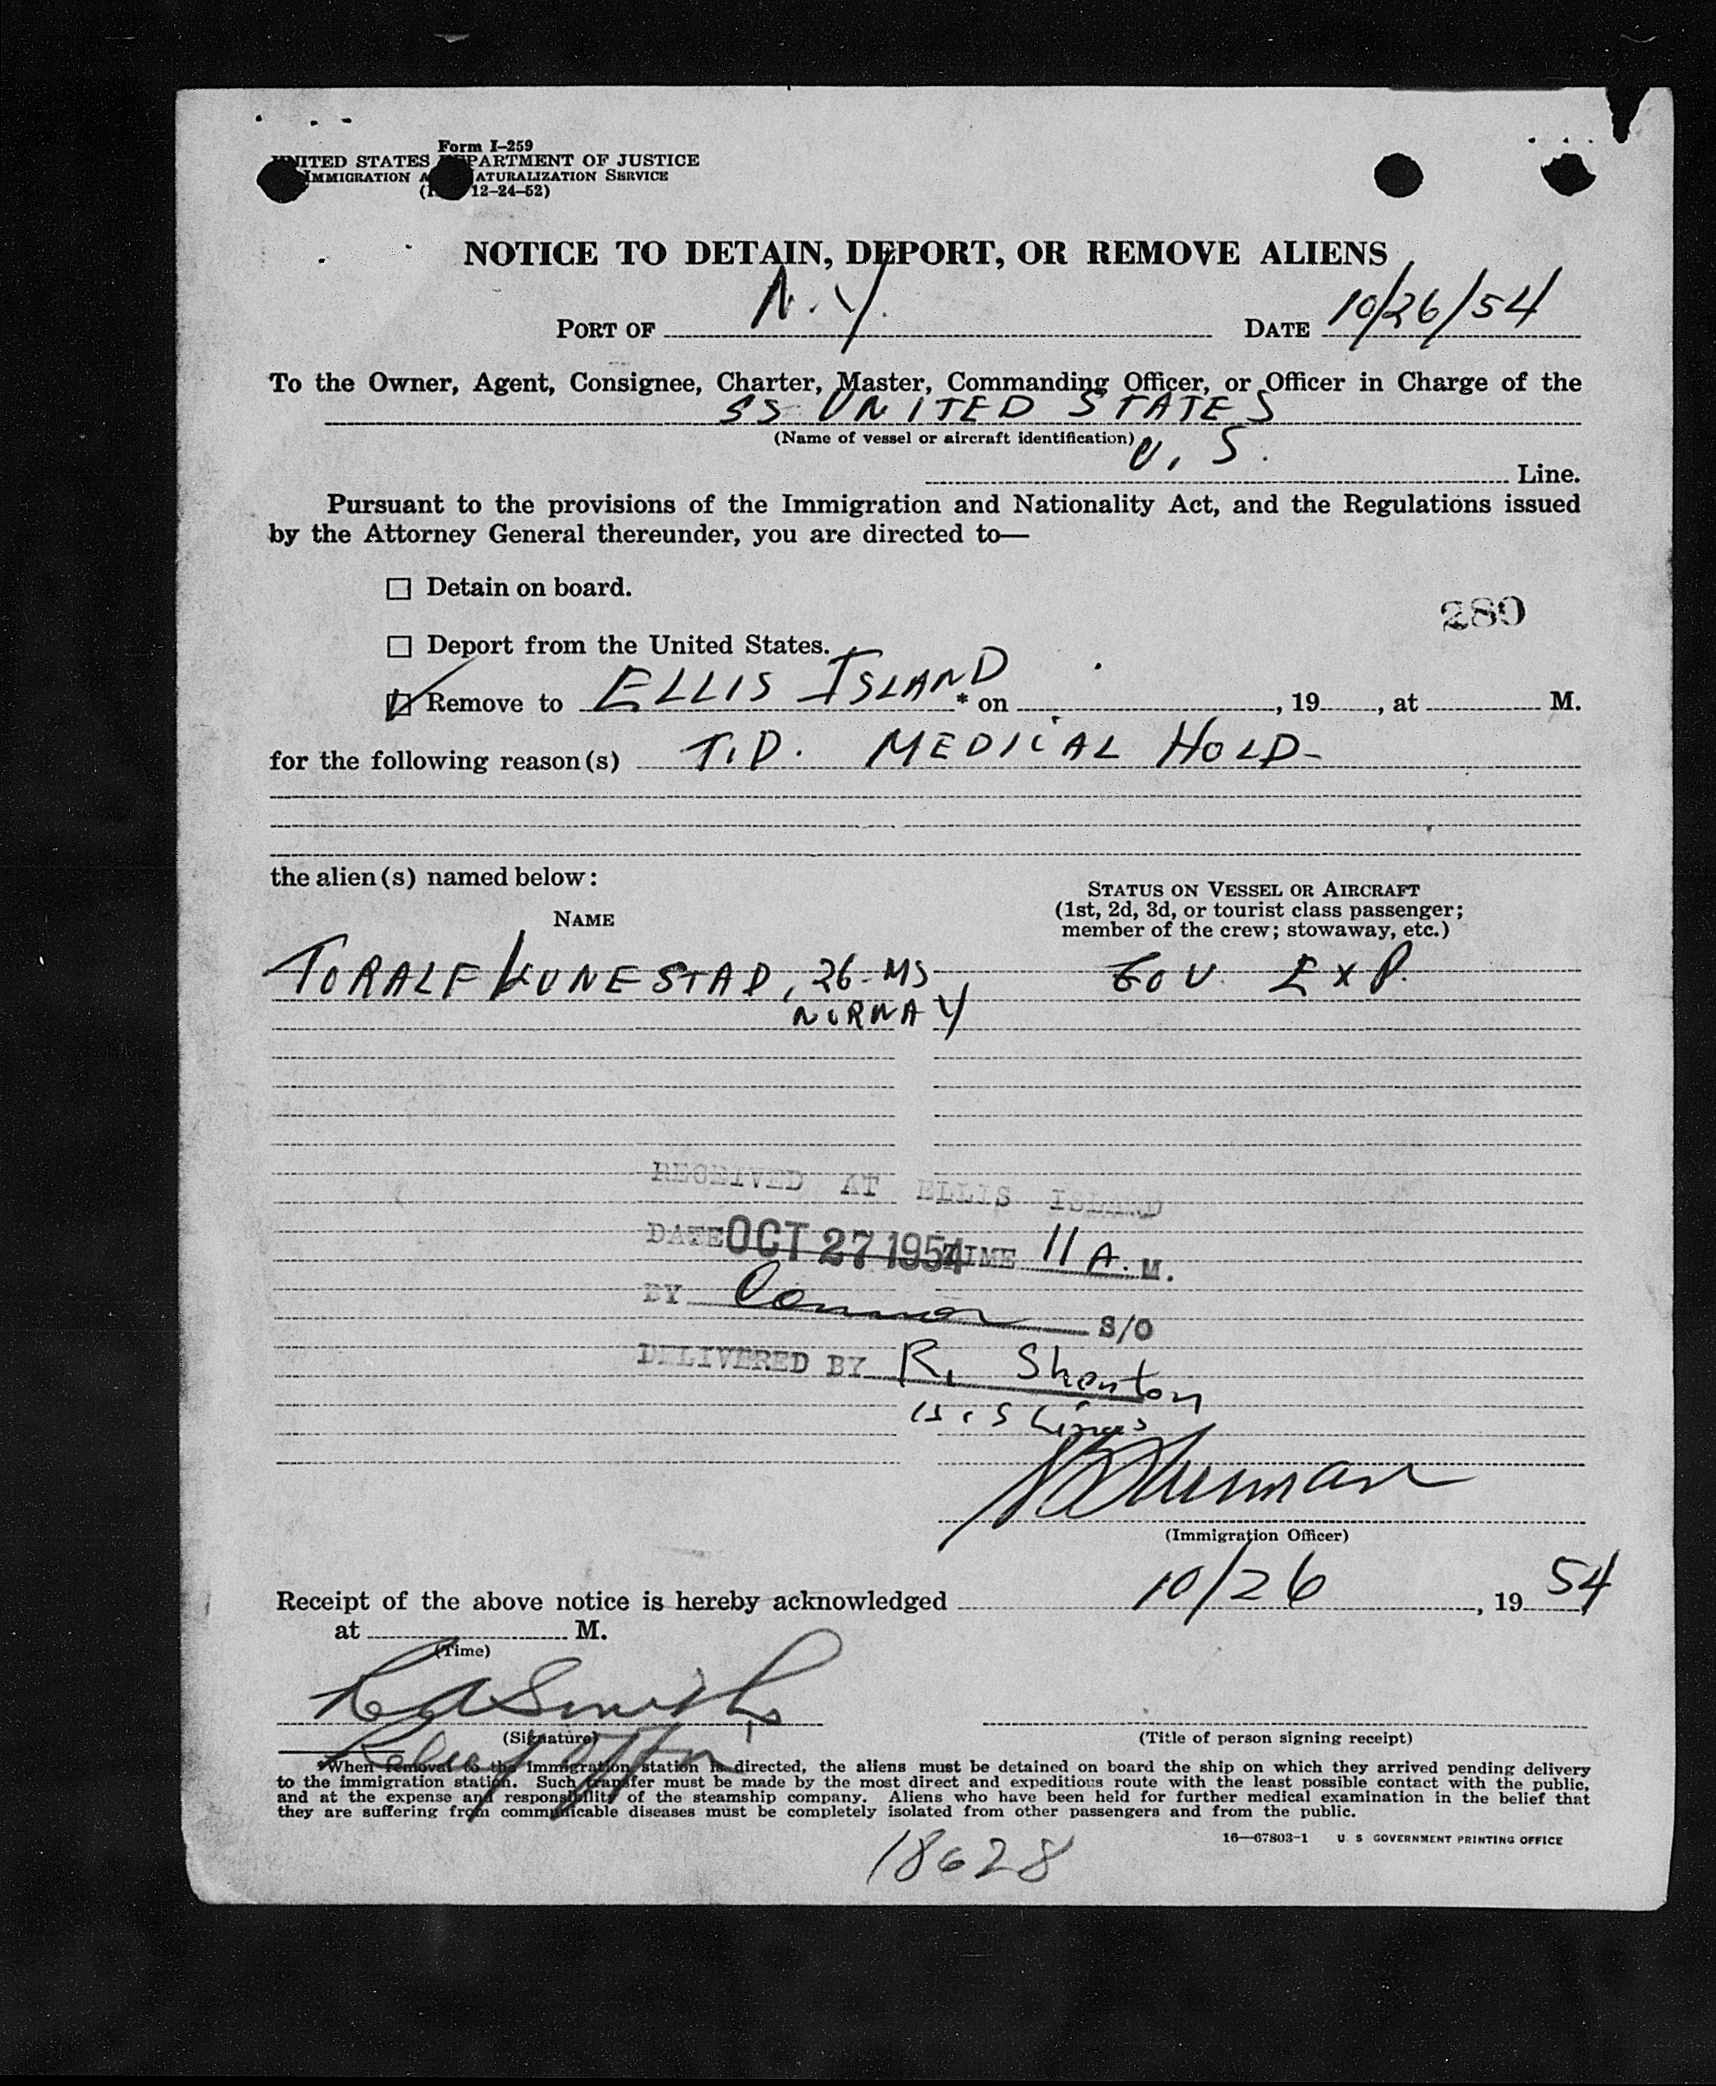 Form I-259
UNITED STATES DEPARTMENT OF JUSTICE
IMMIGRATION AND NATURALIZATION SERVICE
12-24-52)
NOTICE TO DETAIN, DEPORT, OR REMOVE ALIENS
PORT OF N.Y. DATE 10/26/54
To the Owner, Agent, Consignee, Charter, Master, Commanding Officer, or Officer in Charge of the
SS UNITED STATES
(Name of vessel or aircraft identification)
U.S. Line.
Pursuant to the provisions of the Immigration and Nationality Act, and the Regulations issued
by the Attorney General thereunder, you are directed to—
Detain on board.
289
Deport from the United States.
Remove to ELLIS ISLAND * on , 19 , at M.
for the following reason(s) T.D. MEDICAL HOLD-
the alien(s) named below:
NAME
STATUS ON VESSEL OR AIRCRAFT
(1st, 2d, 3d, or tourist class passenger;
member of the crew; stowaway, etc.)
TORALF KUNESTAD, 26-MS GOV. EXP.
NORWAY
RECEIVED AT ELLIS ISLAND
DATE OCT 27 1954 TIME 11 A. M.
BY Connor S/O
DELIVERED BY R. Shenton
U.S Lines
(Immigration Officer)
Receipt of the above notice is hereby acknowledged 10/26, 19 54
at M.
(Time)
(Signature)
(Title of person signing receipt)
*When removal to the immigration station is directed, the aliens must be detained on board the ship on which they arrived pending delivery
to the immigration station. Such transfer must be made by the most direct and expeditious route with the least possible contact with the public,
and at the expense and responsibility of the steamship company. Aliens who have been held for further medical examination in the belief that
they are suffering from communicable diseases must be completely isolated from other passengers and from the public.
16—67803-1 U S GOVERNMENT PRINTING OFFICE
18628